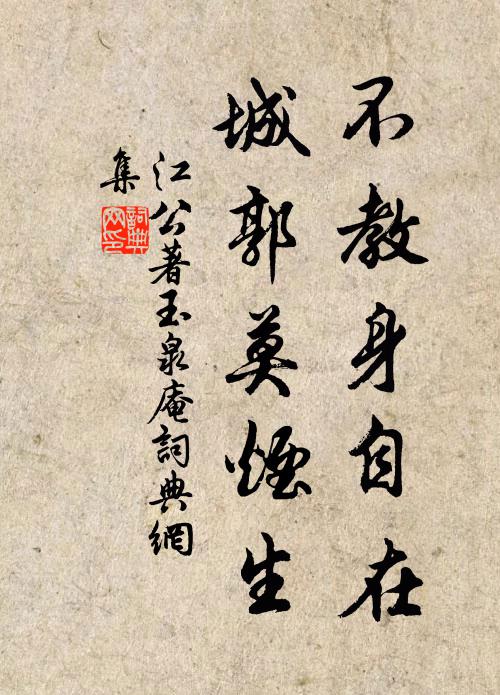 不教身自在
城郭莫煙生
江公著玉泉庵詞典網
集
詞典
网印